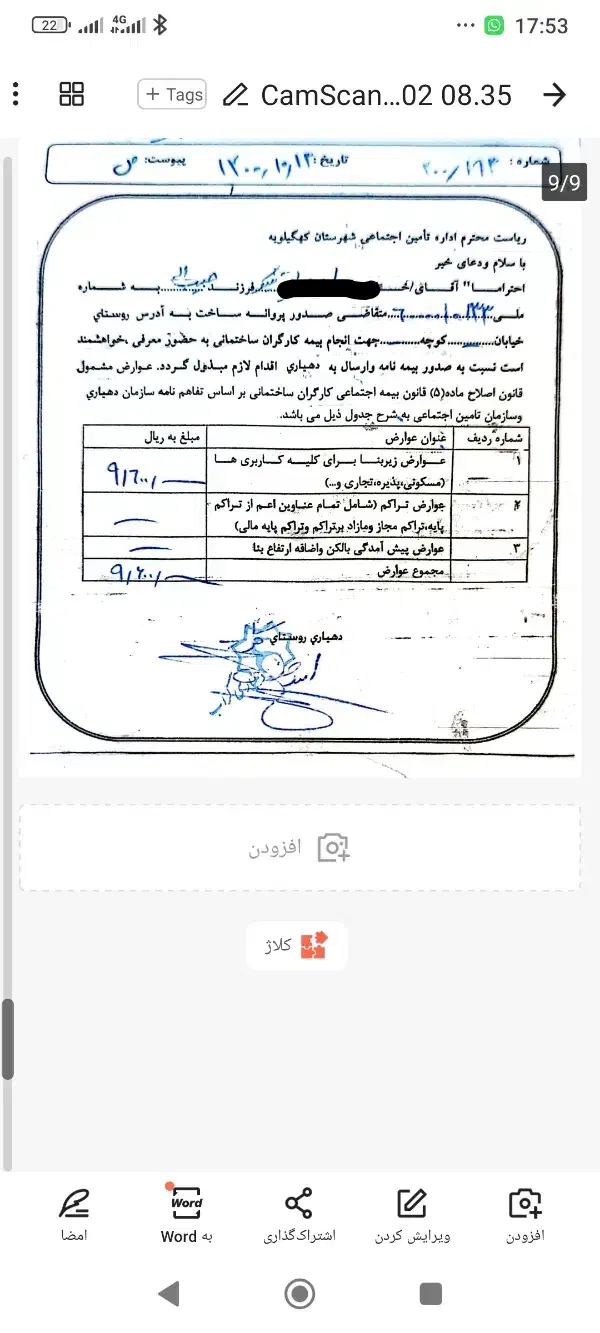 22 4G 17:53
+ Tags CamScan...02 08.35
9/9
شماره: ۲۰۰/۱۶۳ تاریخ: ۱۴۰۰/۱۰/۱۳ پیوست:
ریاست محترم اداره تأمین اجتماعی شهرستان کهگیلویه
با سلام ودعای خیر
احتراما" آقــای/خــ... فرزنــد حبیب اله بــه شــماره
ملــی... متقاضــی صــدور پروانــه ســاخت بــه آدرس روستاي
خیابان......کوچه......جهت انجام بیمه کارگران ساختمانی به حضور معرفی ،خواهشمند
است نسبت به صدور بیمه نامه وارسال به دهیاري اقدام لازم مبذول گردد. عوارض مشمول
قانون اصلاح ماده(۵) قانون بیمه اجتماعی کارگران ساختمانی بر اساس تفاهم نامه سازمان دهیاري
وسازمان تامین اجتماعی به شرح جدول ذیل می باشد.
شماره ردیف عنوان عوارض مبلغ به ریال
۱ عــوارض زیربنــا بــرای کلیــه کــاربری هــا
(مسکونی،پذیره،تجاری و...)
۲ عوارض تراکم (شامل تمام عناوین اعم از تراکم
پایه،تراکم مجاز ومازاد برتراکم وتراکم پایه مالی)
۳ عوارض پیش آمدگی بالکن واضافه ارتفاع بنا
مجموع عوارض
دهیاري روستاي
افزودن
کلاژ
افزودن ویرایش کردن اشتراک‌گذاری به Word امضا
Word